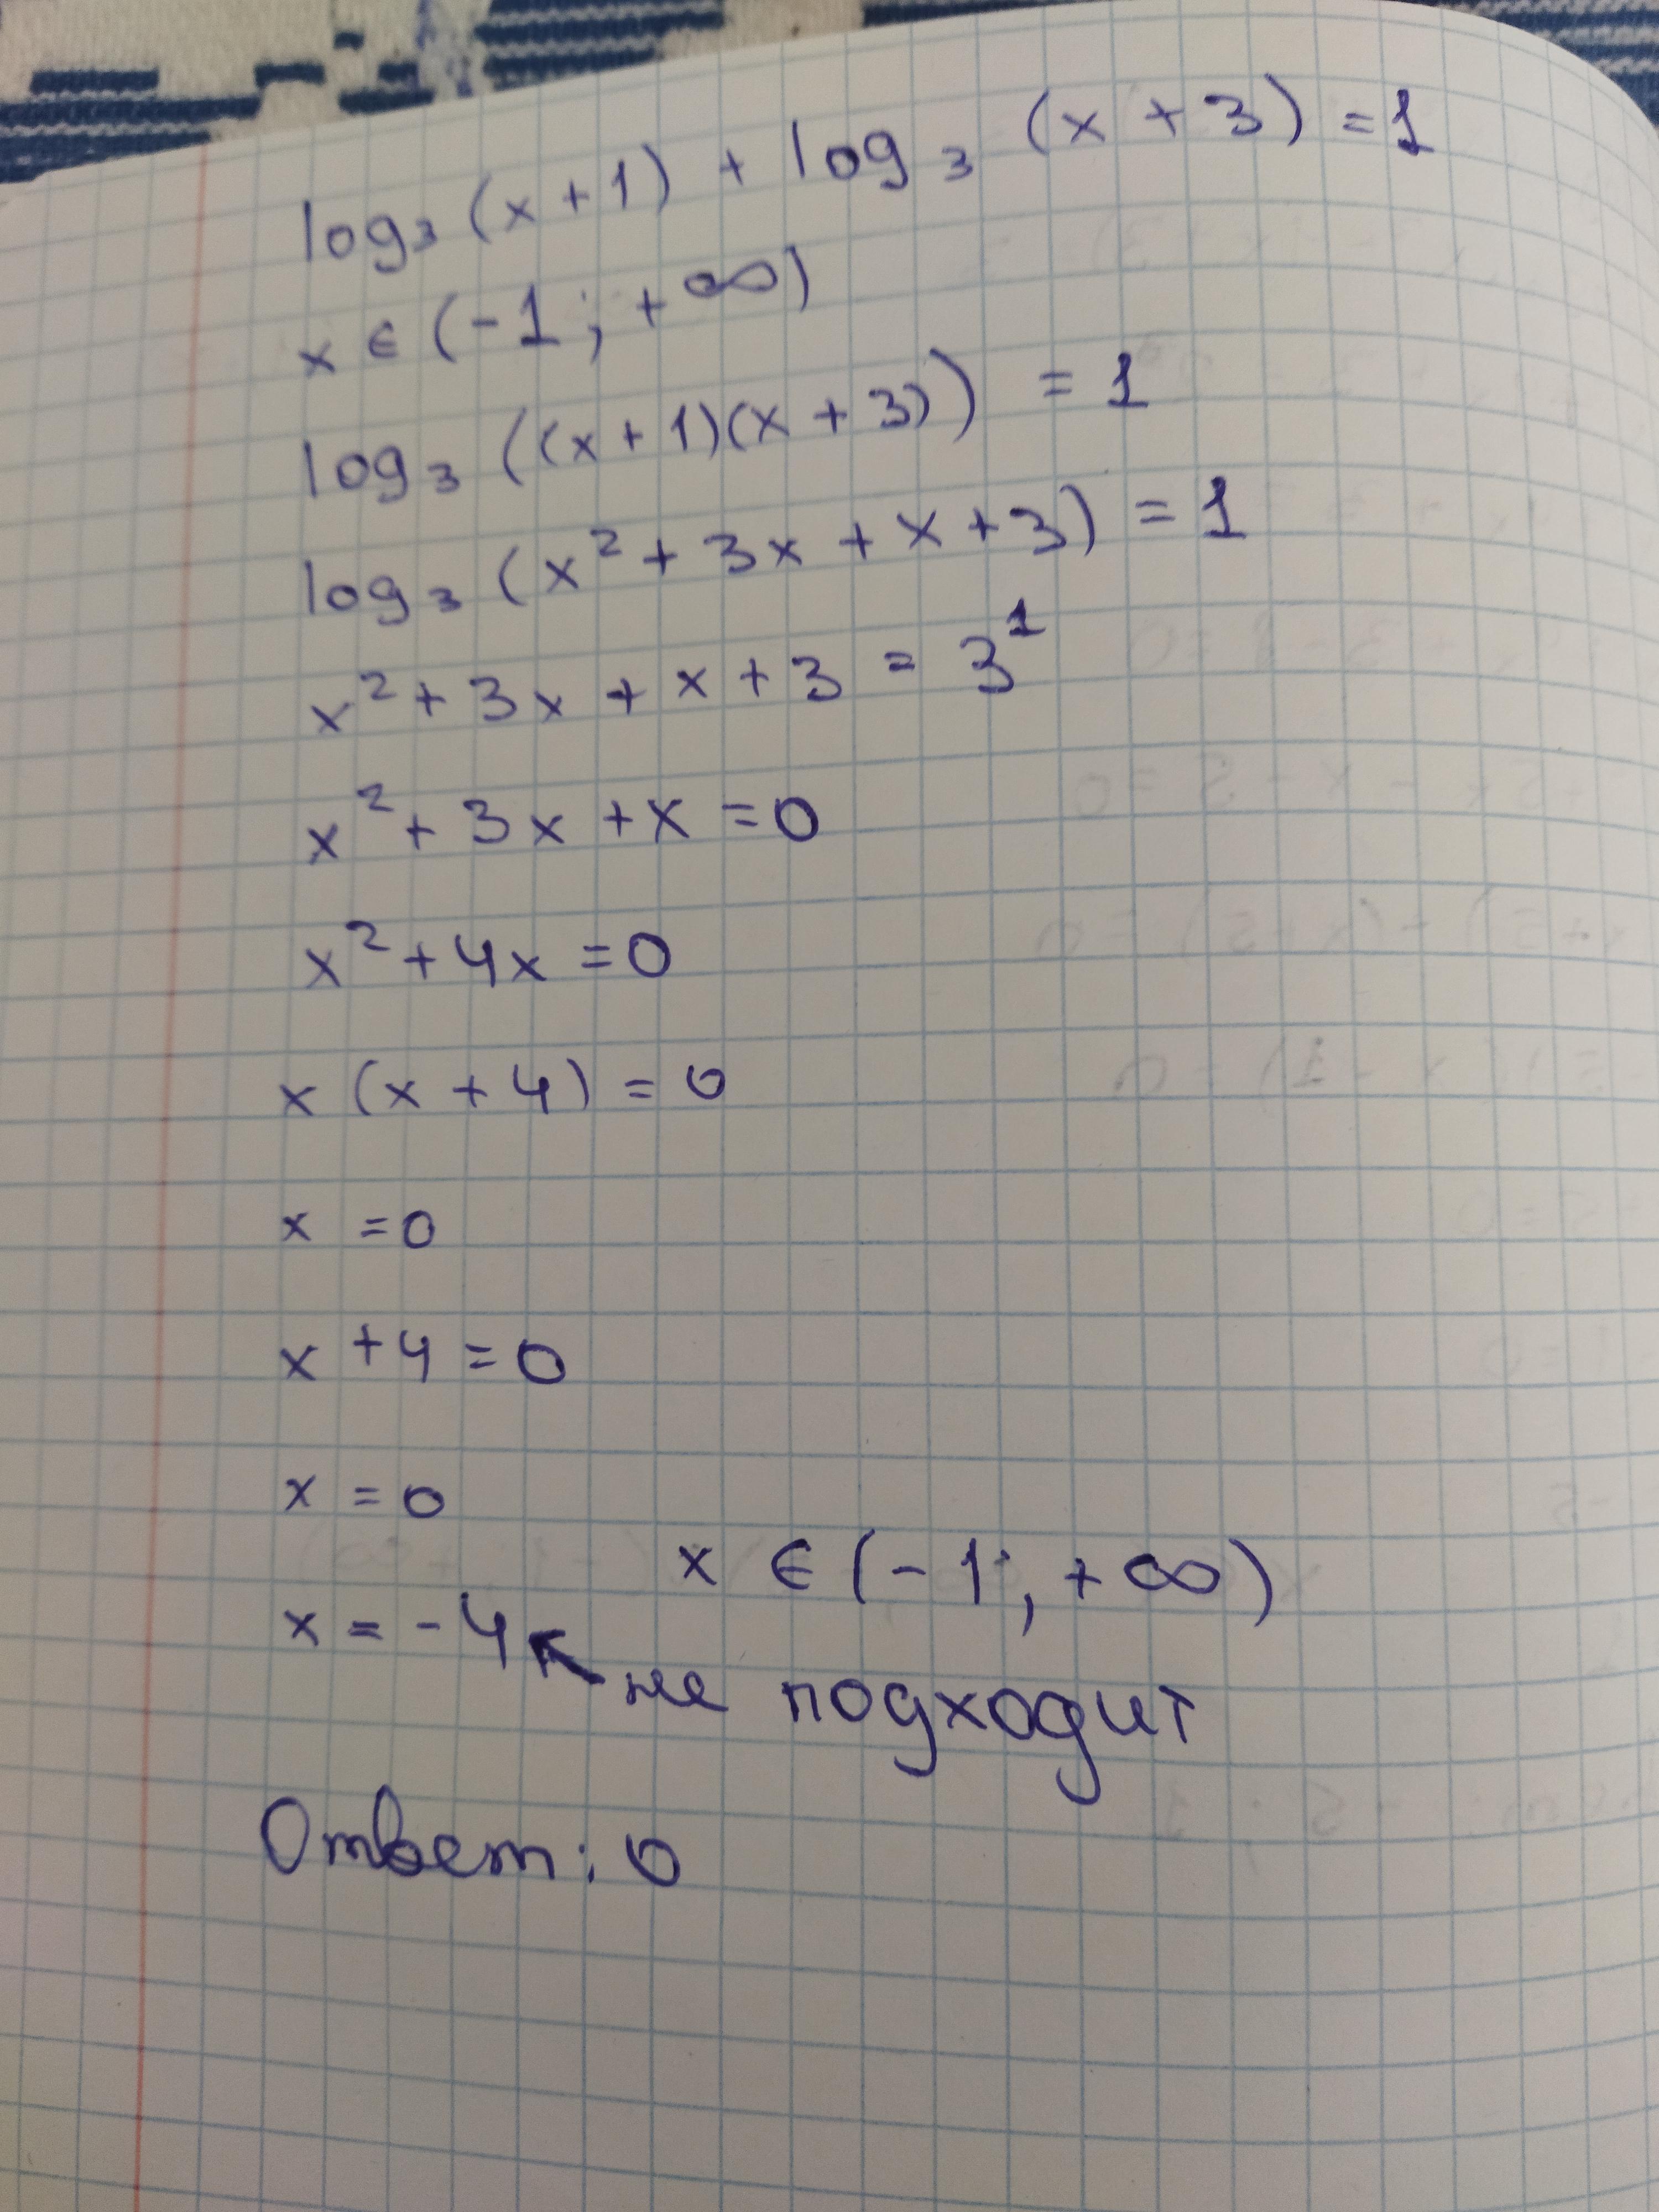 log₃(x+1) + log₃(x+3) = 1
x ∈ (-1; +∞)
log₃((x+1)(x+3)) = 1
log₃(x² + 3x + x + 3) = 1
x² + 3x + x + 3 = 3¹
x² + 3x + x = 0
x² + 4x = 0
x (x + 4) = 0
x = 0
x + 4 = 0
x = 0
x ∈ (-1; +∞)
x = -4
не подходит
Ответ: 0